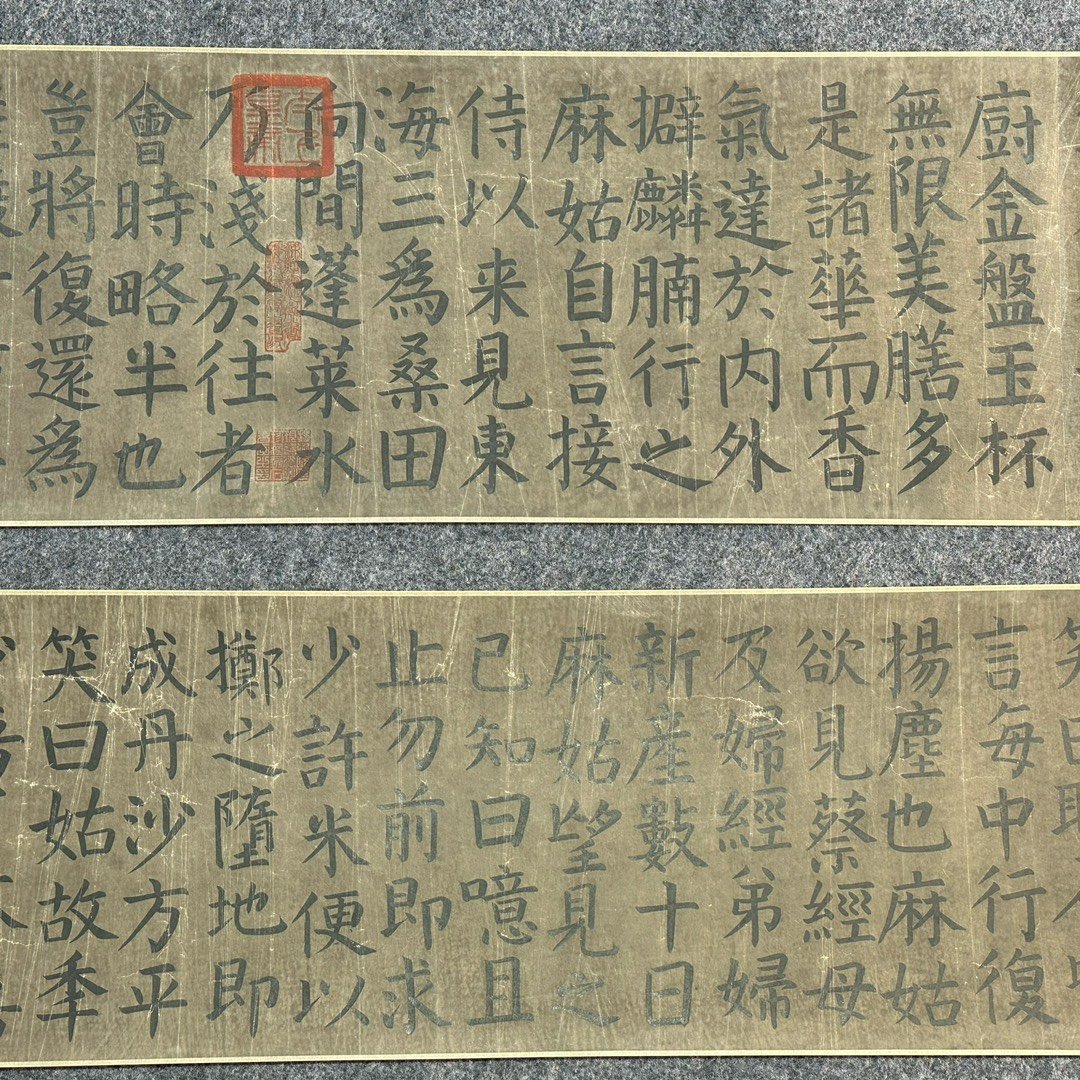 廚金盤玉杯
無限美膳多
是諸華而香
氣達於内外
擗麟腩行之
麻姑自言接
侍以来見東
海三為桑田
向間蓬莱水
乃淺於往者
會時略半也
豈將復還為
言每中行復
揚塵也麻姑
欲見蔡經母
及婦經弟婦
新產數十日
麻姑望見之
已知曰噫且
止勿前即求
少許米便以
擲之墮地即
成丹沙方平
笑曰姑故秊